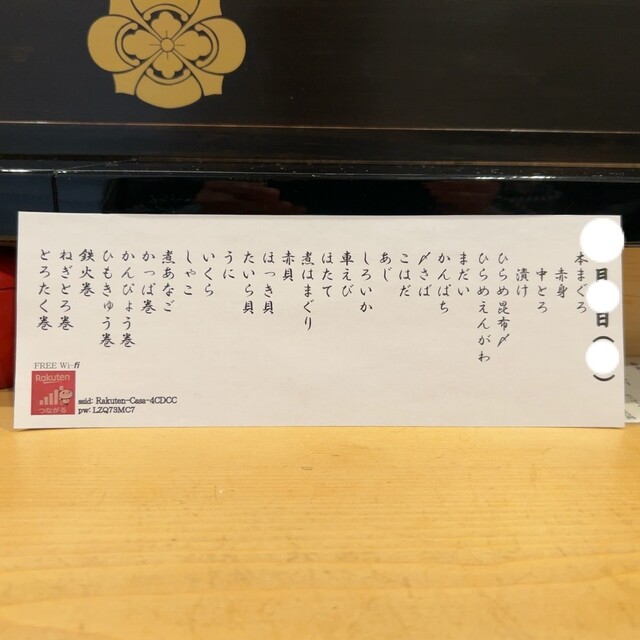 月 日（ ）
本まぐろ
赤身
中とろ
漬け
ひらめ昆布〆
ひらめえんがわ
まだい
かんぱち
〆さば
こはだ
あじ
しろいか
車えび
ほたて
煮はまぐり
赤貝
ほっき貝
たいら貝
うに
いくら
しゃこ
煮あなご
かっぱ巻
かんぴょう巻
ひもきゅう巻
鉄火巻
ねぎとろ巻
とろたく巻
FREE Wi-fi
Rakuten
つながる
ssid: Rakuten-Casa-4CDCC
pw: LZQ73MC7